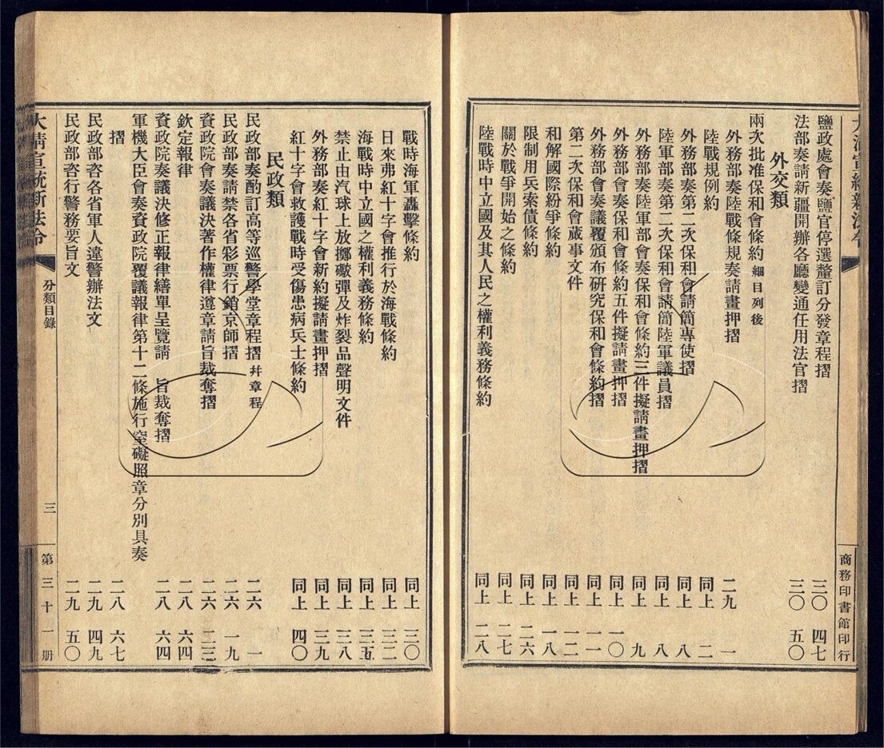 大清宣統新法令
商務印書館印行
鹽政處會奏鹽官停選釐訂分發章程摺 三〇 四七
法部奏請新疆開辦各廳變通任用法官摺 三〇 五〇
外交類
兩次批准保和會條約 細目列後
外務部奏陸戰條規奏請畫押摺 二九 一
陸戰規例約 同上 二
外務部奏第二次保和會請簡專使摺 同上 八
陸軍部奏第二次保和會請簡陸軍議員摺 同上 八
外務部奏陸軍部會奏保和會條約三件擬請畫押摺 同上 九
外務部會奏保和會條約五件擬請畫押摺 同上 一〇
外務部會奏議覆頒布研究保和會條約摺 同上 一一
第二次保和會蕆事文件 同上 一二
和解國際紛爭條約 同上 一八
限制用兵索債條約 同上 二六
關於戰爭開始之條約 同上 二七
陸戰時中立國及其人民之權利義務條約 同上 二八
戰時海軍轟擊條約 同上 三〇
日來弗紅十字會推行於海戰條約 同上 三二
海戰時中立國之權利義務條約 同上 三五
禁止由汽球上放擲礮彈及炸裂品聲明文件 同上 三八
外務部奏紅十字會新約擬請畫押摺 同上 三九
紅十字會救護戰時受傷患病兵士條約 同上 四〇
民政類
民政部奏酌訂高等巡警學堂章程摺 幷章程 二六 一
民政部奏請禁各省彩票行銷京師摺 二六 一九
資政院會奏議決著作權律遵章請旨裁奪摺 二六 二三
欽定報律 二八 六四
資政院奏議決修正報律繕單呈覽請 旨裁奪摺 二八 六四
軍機大臣會奏資政院覆議報律第十二條施行窒礙照章分別具奏
摺 二八 六七
民政部咨各省軍人違警辦法文 二九 四九
民政部咨行警務要旨文 二九 五〇
大清宣統新法令
分類目錄
三
第三十一册